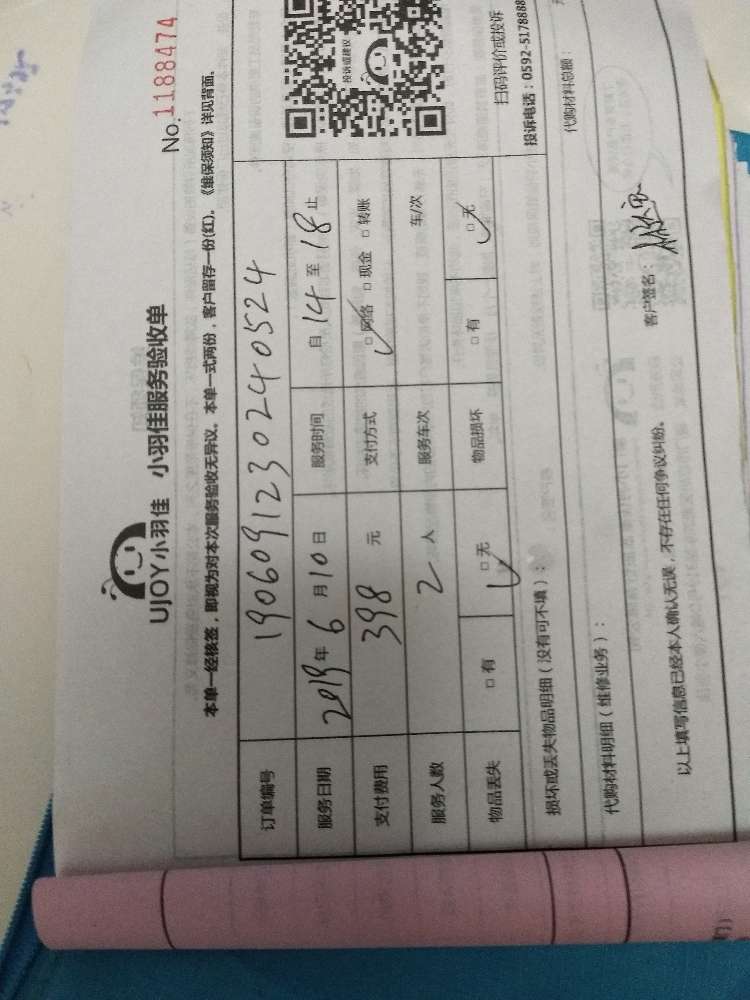 UJOY小羽佳 小羽佳服务验收单
No.1188474
本单一经核签，即视为对本次服务验收无异议。本单一式两份，客户留存一份(红)。《维保须知》详见背面。
订单编号 190609123024 0524
服务日期 2019年6月10日 服务时间 自14至18止
支付费用 398元 支付方式 □网络 □现金 □转账
服务人数 2人 服务车次 车/次
物品丢失 □有 □无 物品损坏 □有 □无
投诉或建议
扫码评价或投诉
损坏或丢失物品明细（没有可不填）：
投诉电话：0592-5178888
代购材料明细（维修业务）：
代购材料总额：
以上填写信息已经本人确认无误，不存在任何争议纠纷。
客户签名：